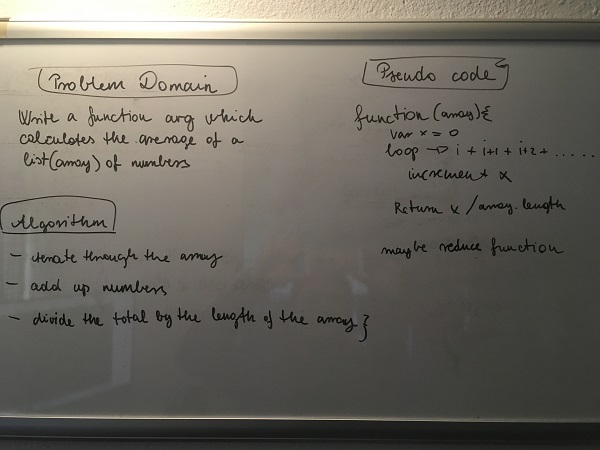 Problem Domain
Write a function avg which
calculates the average of a
list(array) of numbers
Algorithm
- iterate through the array
- add up numbers
- divide the total by the length of the array }
Pseudo code
function (array){
var x = 0
loop → i + i+1 + i+2 + .....
increment x
Return x / array.length
maybe reduce function